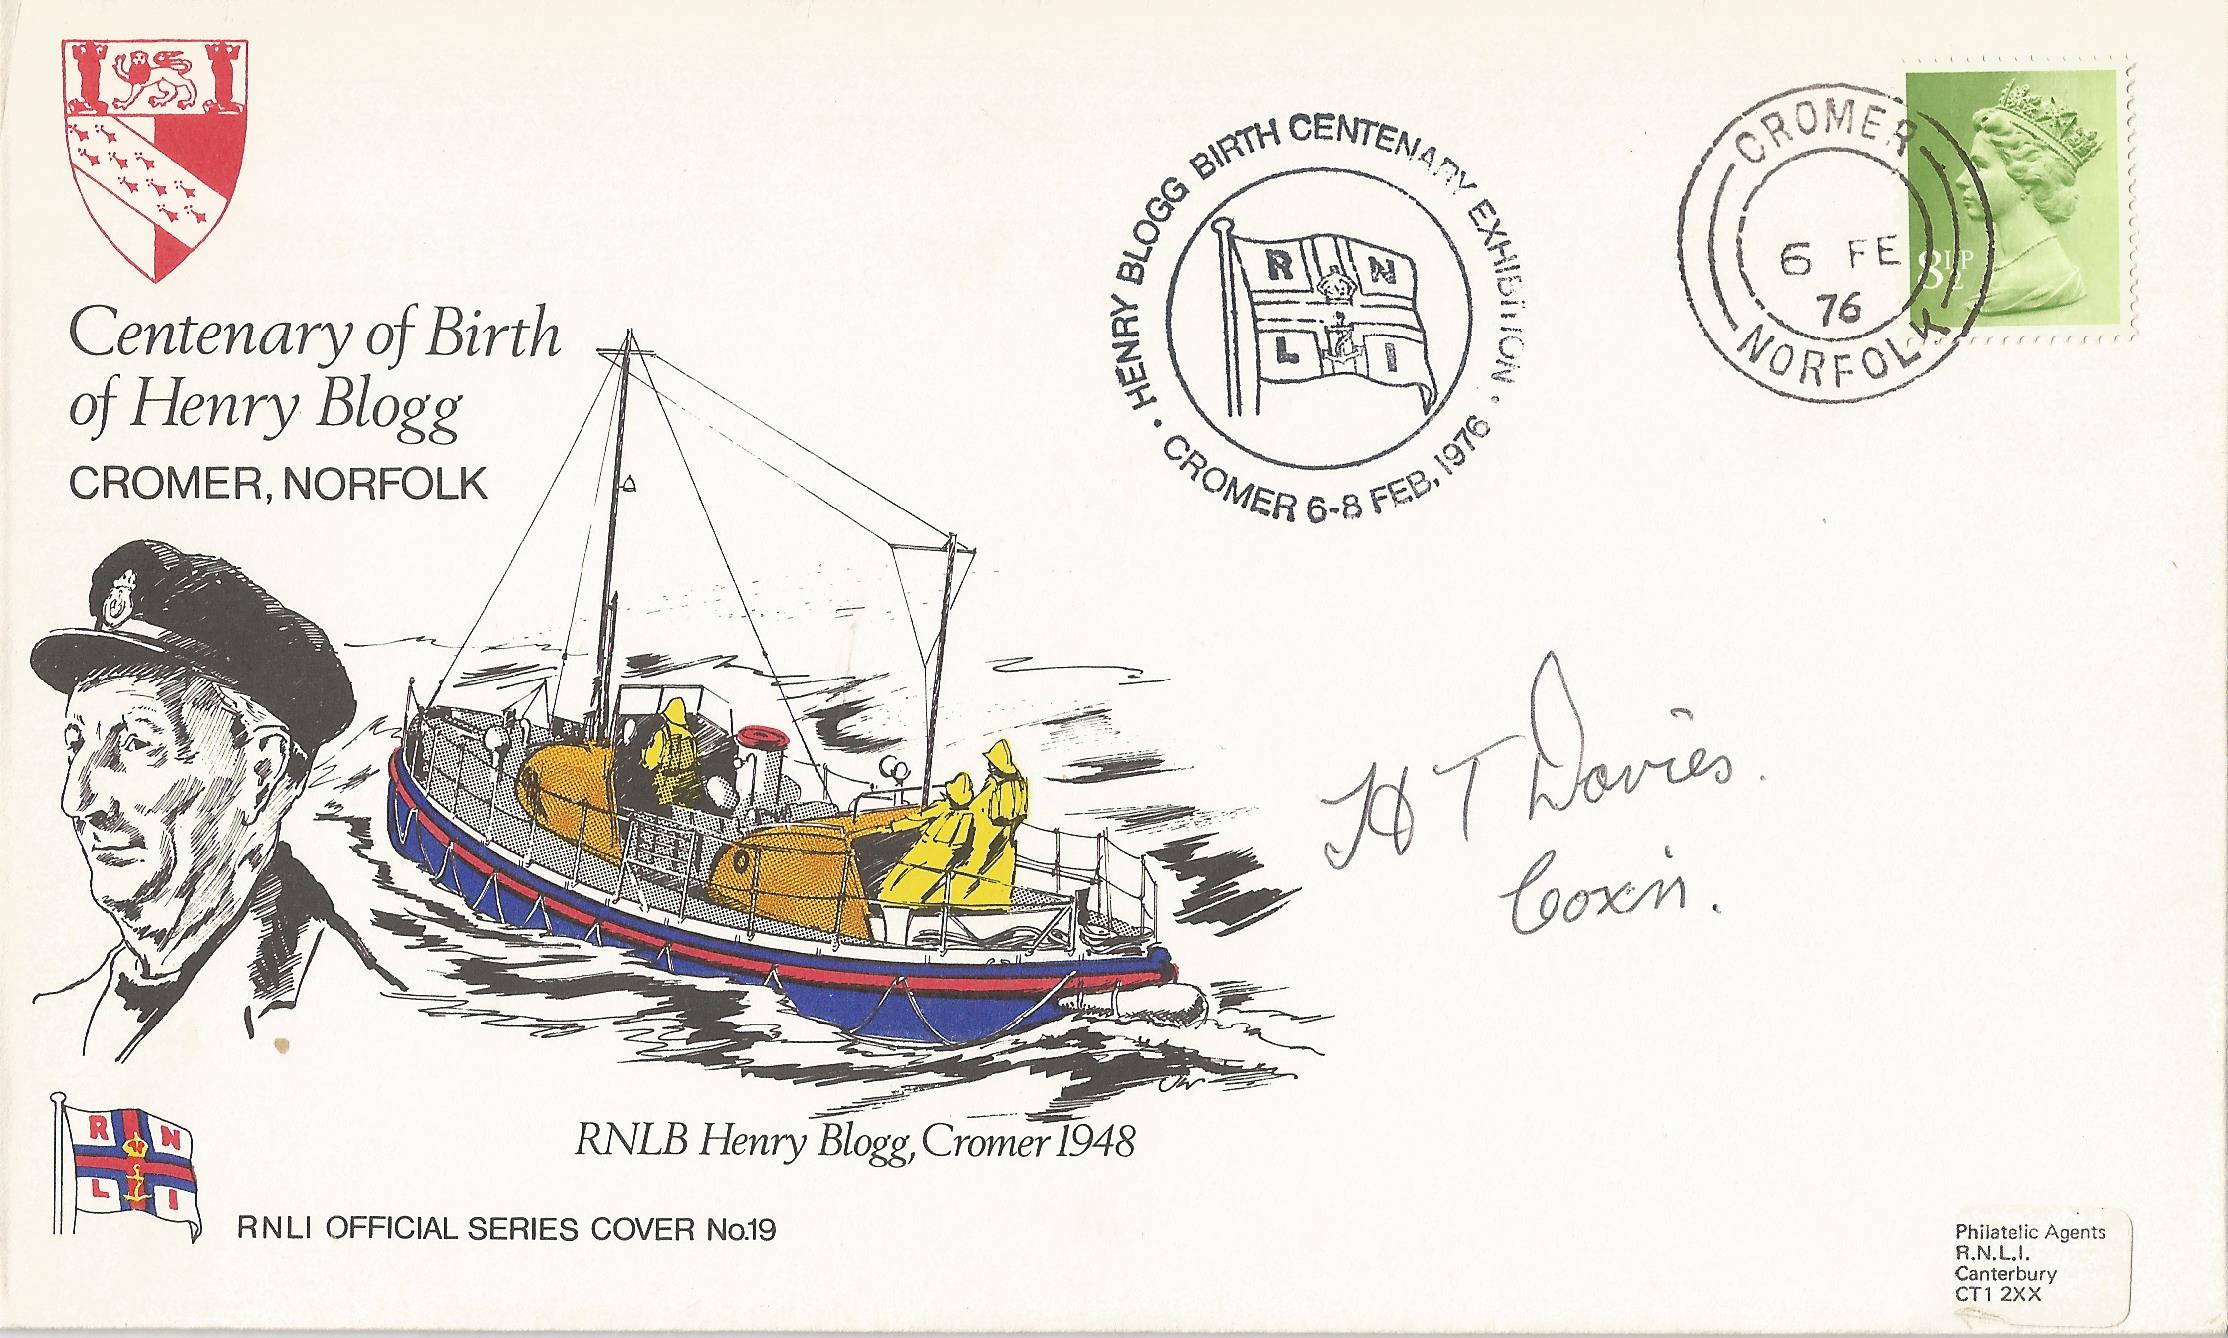 Centenary of Birth
of Henry Blogg
CROMER, NORFOLK
HENRY BLOGG BIRTH CENTENARY EXHIBITION
· CROMER 6-8 FEB, 1976 ·
R N
L I
CROMER
6 FE
76
NORFOLK
8½P
H T Davies.
Coxn.
JW
RNLB Henry Blogg, Cromer 1948
R N
L I
RNLI OFFICIAL SERIES COVER No.19
Philatelic Agents
R.N.L.I.
Canterbury
CT1 2XX